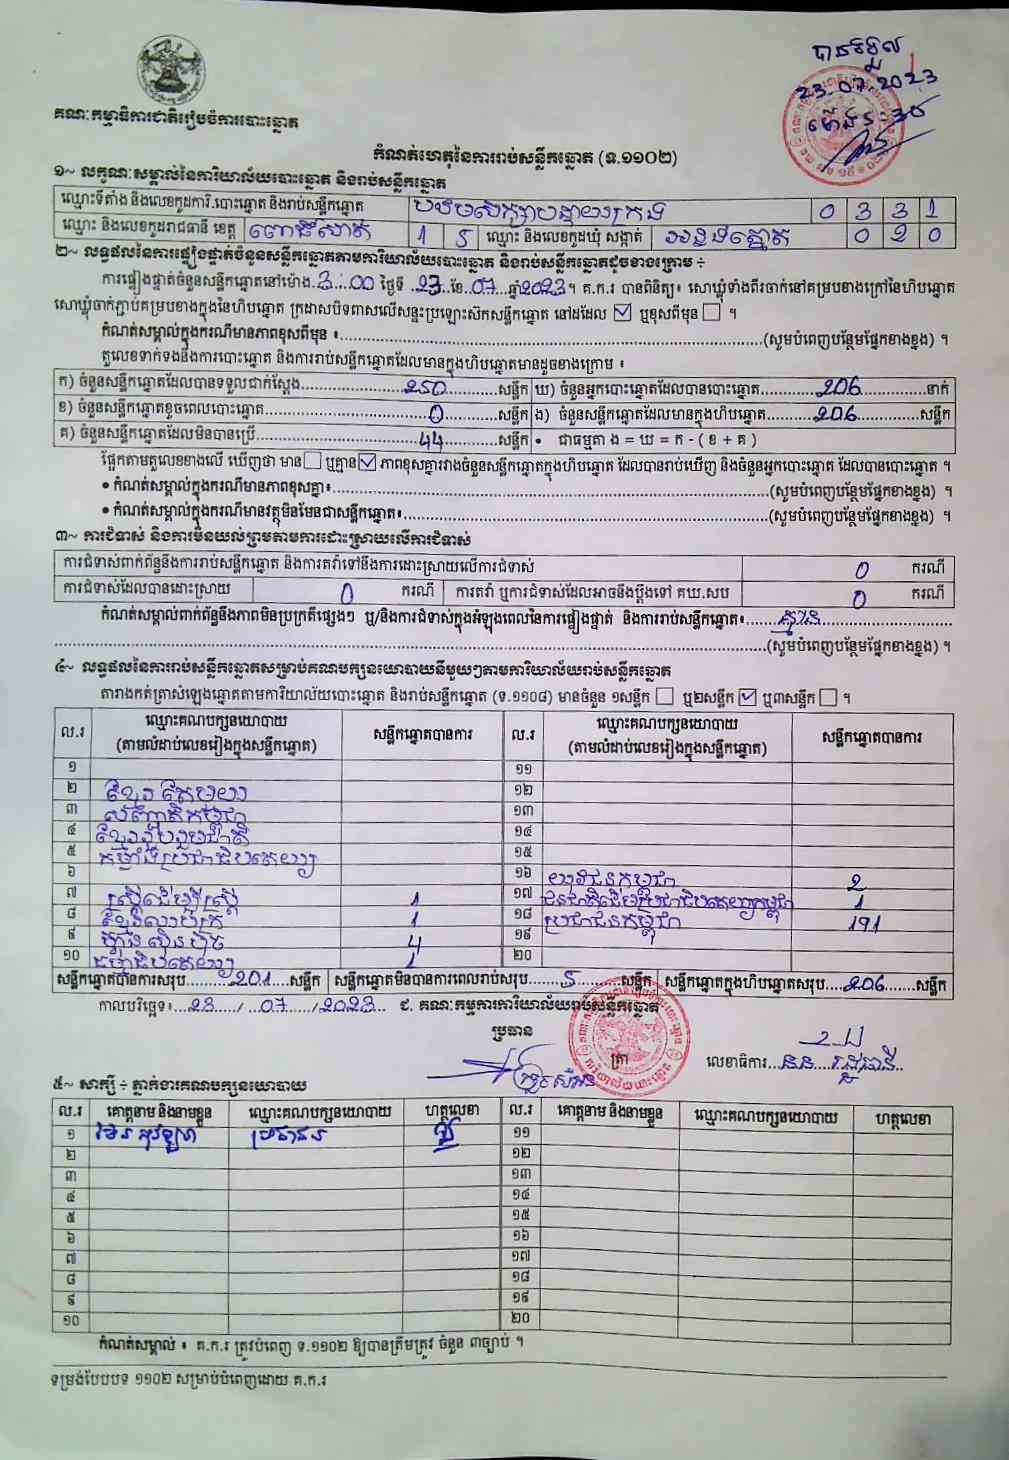 បានទទួល
23.07.2023
ម៉ោង 5:30
គណៈកម្មាធិការជាតិរៀបចំការបោះឆ្នោត
កំណត់ហេតុនៃការរាប់សន្លឹកឆ្នោត (ទ.១១០២)
១~ លក្ខណៈសម្គាល់នៃការិយាល័យបោះឆ្នោត និងរាប់សន្លឹកឆ្នោត
ឈ្មោះទីតាំង និងលេខកូដការិ.បោះឆ្នោត និងរាប់សន្លឹកឆ្នោត 0 3 3 1
ឈ្មោះ និងលេខកូដរាជធានី ខេត្ត ពោធិ៍សាត់ 1 5 ឈ្មោះ និងលេខកូដឃុំ សង្កាត់ 0 2 0
២~ លទ្ធផលនៃការផ្ទៀងផ្ទាត់ចំនួនសន្លឹកឆ្នោតតាមការិយាល័យបោះឆ្នោត និងរាប់សន្លឹកឆ្នោតដូចខាងក្រោម ÷
ការផ្ទៀងផ្ទាត់ចំនួនសន្លឹកឆ្នោតនៅម៉ោង 3:00 ថ្ងៃទី 23 ខែ 07 ឆ្នាំ 2023 ។ គ.ក.រ បានពិនិត្យ៖ សោឃ្លុំទាំងពីរចាក់នៅគម្របខាងក្រៅនៃហិបឆ្នោត
សោឃ្លុំចាក់ភ្ជាប់គម្របខាងក្នុងនៃហិបឆ្នោត ក្រដាសបិទពាសលើសន្ទះប្រឡោះសិកសន្លឹកឆ្នោត នៅដដែល ☑ ឬខុសពីមុន ☐ ។
កំណត់សម្គាល់ក្នុងករណីមានភាពខុសពីមុន ៖ (សូមបំពេញបន្ថែមផ្នែកខាងខ្នង) ។
តួលេខទាក់ទងនឹងការបោះឆ្នោត និងការរាប់សន្លឹកឆ្នោតដែលមានក្នុងហិបឆ្នោតមានដូចខាងក្រោម ៖
ក) ចំនួនសន្លឹកឆ្នោតដែលបានទទួលជាក់ស្តែង 250 សន្លឹក ឃ) ចំនួនអ្នកបោះឆ្នោតដែលបានបោះឆ្នោត 206 នាក់
ខ) ចំនួនសន្លឹកឆ្នោតខូចពេលបោះឆ្នោត 0 សន្លឹក ង) ចំនួនសន្លឹកឆ្នោតដែលមានក្នុងហិបឆ្នោត 206 សន្លឹក
គ) ចំនួនសន្លឹកឆ្នោតដែលមិនបានប្រើ 44 សន្លឹក • ជាធម្មតា ង = ឃ = ក - ( ខ + គ )
ផ្អែកតាមតួលេខខាងលើ ឃើញថា មាន ☐ ឬគ្មាន ☑ ភាពខុសគ្នារវាងចំនួនសន្លឹកឆ្នោតក្នុងហិបឆ្នោត ដែលបានរាប់ឃើញ និងចំនួនអ្នកបោះឆ្នោត ដែលបានបោះឆ្នោត ។
• កំណត់សម្គាល់ក្នុងករណីមានភាពខុសគ្នា៖ (សូមបំពេញបន្ថែមផ្នែកខាងខ្នង) ។
• កំណត់សម្គាល់ក្នុងករណីមានវត្ថុមិនមែនជាសន្លឹកឆ្នោត៖ (សូមបំពេញបន្ថែមផ្នែកខាងខ្នង) ។
៣~ ការជំទាស់ និងការមិនយល់ព្រមតាមការដោះស្រាយលើការជំទាស់
ការជំទាស់ពាក់ព័ន្ធនឹងការរាប់សន្លឹកឆ្នោត និងការតវ៉ាទៅនឹងការដោះស្រាយលើការជំទាស់ 0 ករណី
ការជំទាស់ដែលបានដោះស្រាយ 0 ករណី ការតវ៉ា ឬការជំទាស់ដែលអាចនឹងប្តឹងទៅ គឃ.សប 0 ករណី
កំណត់សម្គាល់ពាក់ព័ន្ធនឹងភាពមិនប្រក្រតីផ្សេងៗ ឬ/និងការជំទាស់ក្នុងអំឡុងពេលនៃការផ្ទៀងផ្ទាត់ និងការរាប់សន្លឹកឆ្នោត៖ គ្មាន
(សូមបំពេញបន្ថែមផ្នែកខាងខ្នង) ។
៤~ លទ្ធផលនៃការរាប់សន្លឹកឆ្នោតសម្រាប់គណបក្សនយោបាយនីមួយៗតាមការិយាល័យរាប់សន្លឹកឆ្នោត
តារាងកត់ត្រាសំឡេងឆ្នោតតាមការិយាល័យបោះឆ្នោត និងរាប់សន្លឹកឆ្នោត (ទ.១១០៨) មានចំនួន ១សន្លឹក ☐ ឬ២សន្លឹក ☑ ឬ៣សន្លឹក ☐ ។
ល.រ ឈ្មោះគណបក្សនយោបាយ (តាមលំដាប់លេខរៀងក្នុងសន្លឹកឆ្នោត) សន្លឹកឆ្នោតបានការ ល.រ ឈ្មោះគណបក្សនយោបាយ (តាមលំដាប់លេខរៀងក្នុងសន្លឹកឆ្នោត) សន្លឹកឆ្នោតបានការ
១ ១១
២ ១២
៣ ១៣
៤ ខ្មែររួបរួមជាតិ ១៤
៥ កម្លាំងប្រជាធិបតេយ្យ ១៥
៦ ១៦ យុវជនកម្ពុជា 2
៧ ស្ត្រីដើម្បីស្ត្រី 1 ១៧ ជនជាតិដើមប្រជាធិបតេយ្យកម្ពុជា 1
៨ ខ្មែរឈប់ក្រ 1 ១៨ ប្រជាជនកម្ពុជា 191
៩ ហ្វ៊ុនស៊ិនប៉ិច 4 ១៩
១០ 1 ២០
សន្លឹកឆ្នោតបានការសរុប 201 សន្លឹក សន្លឹកឆ្នោតមិនបានការពេលរាប់សរុប 5 សន្លឹក សន្លឹកឆ្នោតក្នុងហិបឆ្នោតសរុប 206 សន្លឹក
កាលបរិច្ឆេទ៖ 23 / 07 / 2023 ជ. គណៈកម្មការការិយាល័យរាប់សន្លឹកឆ្នោត
ប្រធាន
ត្រា លេខាធិការ
៥~ សាក្សី ÷ ភ្នាក់ងារគណបក្សនយោបាយ
ល.រ គោត្តនាម និងនាមខ្លួន ឈ្មោះគណបក្សនយោបាយ ហត្ថលេខា ល.រ គោត្តនាម និងនាមខ្លួន ឈ្មោះគណបក្សនយោបាយ ហត្ថលេខា
១ ១១
២ ១២
៣ ១៣
៤ ១៤
៥ ១៥
៦ ១៦
៧ ១៧
៨ ១៨
៩ ១៩
១០ ២០
កំណត់សម្គាល់ ៖ គ.ក.រ ត្រូវបំពេញ ទ.១១០២ ឱ្យបានត្រឹមត្រូវ ចំនួន ៣ច្បាប់ ។
ទម្រង់បែបបទ ១១០២ សម្រាប់បំពេញដោយ គ.ក.រ